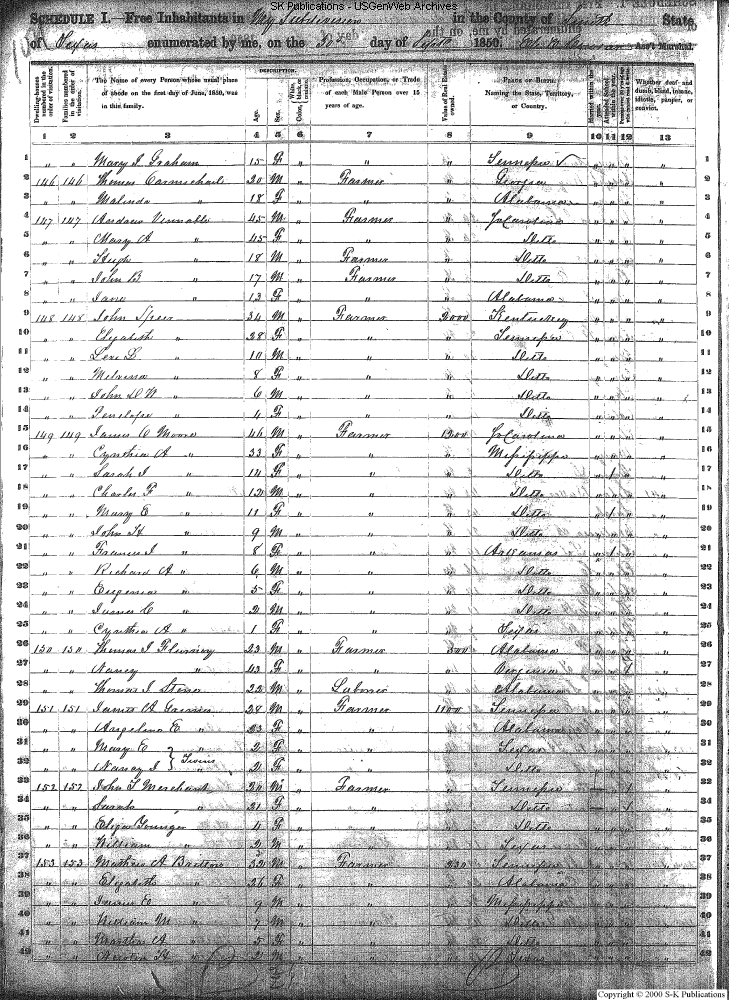 SK Publications - USGenWeb Archives
SCHEDULE I.—Free Inhabitants in My Subdivision in the County of Smith State
of Texas enumerated by me, on the 30th day of Septr 1850. Ass't Marshal.
Dwelling-houses numbered in the order of visitation.
Families numbered in the order of visitation.
The Name of every Person whose usual place of abode on the first day of June, 1850, was in this family.
DESCRIPTION.
Age.
Sex.
Color, White, black, or mulatto.
Profession, Occupation, or Trade of each Male Person over 15 years of age.
Value of Real Estate owned.
PLACE OF BIRTH. Naming the State, Territory, or Country.
Married within the year.
Attended School within the year.
Whether deaf and dumb, blind, insane, idiotic, pauper, or convict.
1 2 3 4 5 6 7 8 9 10 11 12 13
1 " " Mary J Graham 15 F " " " Tennessee " " " " 1
2 146 146 Thomas Carmichael 20 M " Farmer " Georgia " " " " 2
3 " " Malinda " 18 F " " " Alabama " " " " 3
4 147 147 Andrew Vennable 45 M " Farmer " No Carolina " " " " 4
5 " " Mary A " 45 F " " " Ditto " " " " 5
6 " " Hugh " 18 M " Farmer " Ditto " " " " 6
7 " " John B " 17 M " Farmer " Ditto " " " " 7
8 " " Jane " 13 F " " " Alabama " " " " 8
9 148 148 John Speer 34 M " Farmer 2000 Kentuckey " " " " 9
10 " " Elizabeth " 28 F " " " Tennessee " " " " 10
11 " " Levi L " 10 M " " " Ditto " " " " 11
12 " " Melvina " 8 F " " " Ditto " " " " 12
13 " " John D W " 6 M " " " Ditto " " " " 13
14 " " Penelope " 4 F " " " Ditto " " " " 14
15 149 149 James C Moore 46 M " Farmer 1300 No Carolina " " " " 15
16 " " Cynthia A " 33 F " " " Missisippi " " " " 16
17 " " Sarah J " 14 F " " " Ditto " 1 " " 17
18 " " Charles F " 12 M " " " Ditto " " " " 18
19 " " Mary E " 11 F " " " Ditto " 1 " " 19
20 " " John H " 9 M " " " Ditto " " " " 20
21 " " Francis J " 8 F " " " Arkansas " 1 " " 21
22 " " Richard A " 6 M " " " Ditto " " " " 22
23 " " Eugenia " 5 F " " " Ditto " " " " 23
24 " " James C " 2 M " " " Ditto " " " " 24
25 " " Cynthia A " 1 F " " " Texas " " " " 25
26 150 150 Thomas J Flurnory 23 M " Farmer 500 Alabama " " " " 26
27 " " Nancy " 43 F " " " Verginia " " 1 " 27
28 " " Thomas J Stone 22 M " Laborer " Alabama " " " " 28
29 151 151 James A 28 M " Farmer 1100 Tennessee " " " " 29
30 " " Angeline E " 23 F " " " Alabama " " " " 30
31 " " Mary E " 2 F " " " Texas " " " " 31
Twins
32 " " Nancy J " 2 F " " " Ditto " " " " 32
33 152 152 John T Merchant 20 M " Farmer " Tennessee " 1 " 33
34 " " Sarah " 21 F " " " Ditto " 1 " 34
35 " " Eliza Younger 4 F " " " Ditto " " " " 35
36 " " William " 2 M " " " Texas " " " " 36
37 153 153 Mathew A 32 M " Farmer 230 Tennessee " " " " 37
38 " " Elizabeth " 26 F " " " Alabama " " " " 38
39 " " James E " 9 M " " " Missisippi " " " " 39
40 " " William M " 7 M " " " Ditto " " " " 40
41 " " Martha A " 5 F " " " Ditto " " " " 41
42 " " H " 2 M " " " Texas " " " " 42
Copyright © 2000 S-K Publications